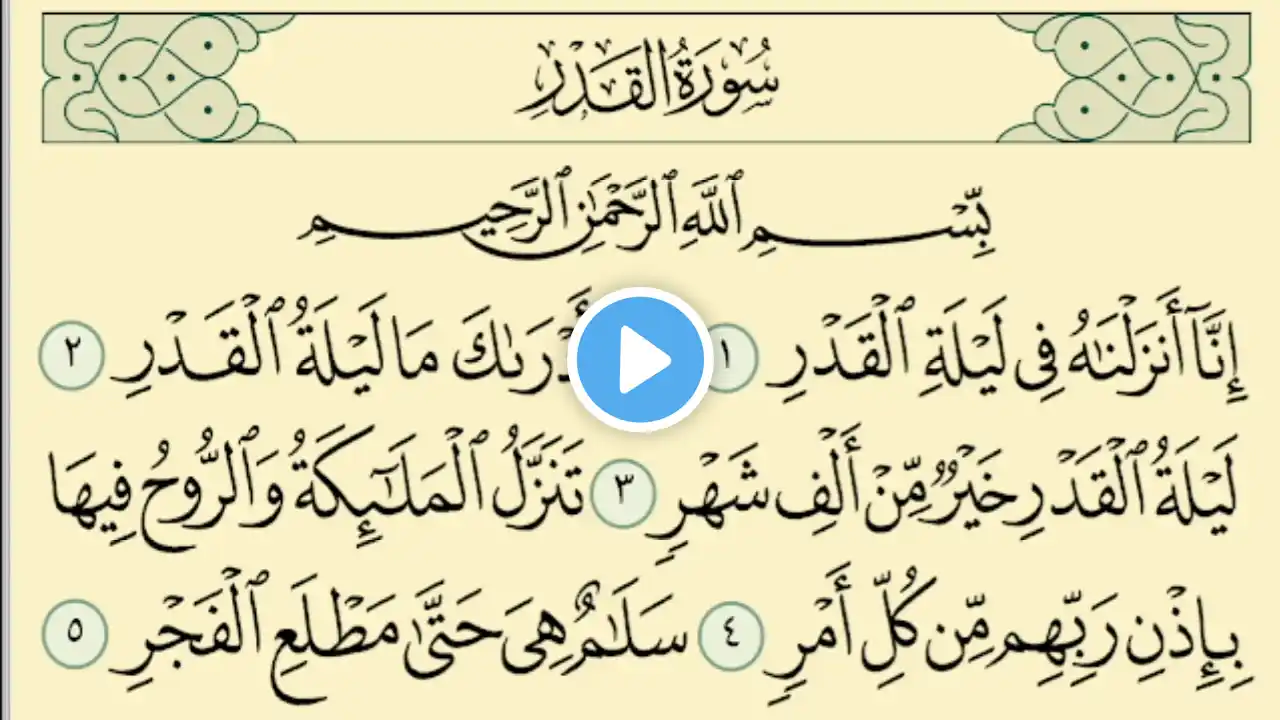 سُورَةُ الْقَدْرِ
بِّسْمِ ٱللَّهِ ٱلرَّحْمَٰنِ ٱلرَّحِيمِ
إِنَّآ أَنزَلْنَٰهُ فِى لَيْلَةِ ٱلْقَدْرِ ١ أَدْرَىٰكَ مَا لَيْلَةُ ٱلْقَدْرِ ٢
لَيْلَةُ ٱلْقَدْرِ خَيْرٌ مِّنْ أَلْفِ شَهْرٍ ٣ تَنَزَّلُ ٱلْمَلَٰٓئِكَةُ وَٱلرُّوحُ فِيهَا
بِإِذْنِ رَبِّهِم مِّن كُلِّ أَمْرٍ ٤ سَلَٰمٌ هِىَ حَتَّىٰ مَطْلَعِ ٱلْفَجْرِ ٥